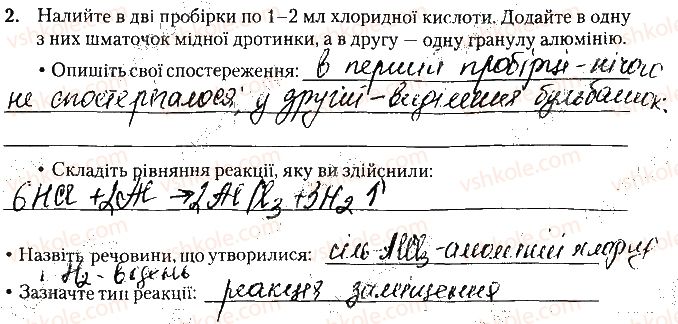 2. Налийте в дві пробірки по 1–2 мл хлоридної кислоти. Додайте в одну
з них шматочок мідної дротинки, а в другу — одну гранулу алюмінію.
• Опишіть свої спостереження: в першій пробірці - нічого
не спостерігалося; у другій - виділення бульбашок.
• Складіть рівняння реакції, яку ви здійснили:
6HCl + 2Al → 2AlCl3 + 3H2 ↑
• Назвіть речовини, що утворилися: сіль AlCl3 - алюміній хлорид
і H2 - водень
• Зазначте тип реакції: реакція заміщення